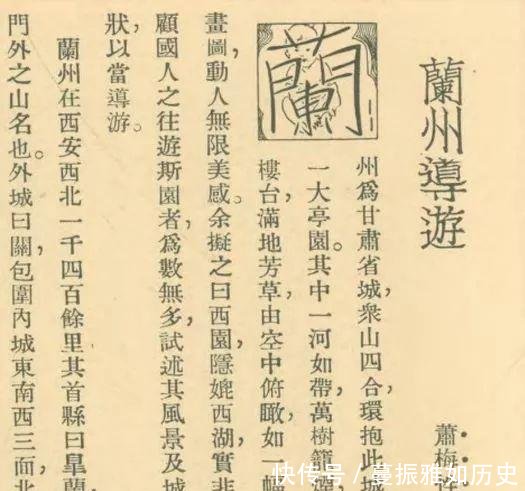 蘭州導遊
蕭梅
蘭
州爲甘肅省城，衆山四合，環抱此城
一大亭園。其中一河如帶，萬樹籠
樓台，滿地芳草，由空中俯瞰，如一幅
畫圖，動人無限美感。余擬之曰西園，隱媲西湖，實非
顧國人之往遊斯園者，爲數無多，試述其風景及城
狀，以當導游。
蘭州在西安西北一千四百餘里，其首縣曰臯蘭
門外之山名也。外城曰關，包圍內城東南西三面，北
快传号/ 蔓振雅如历史